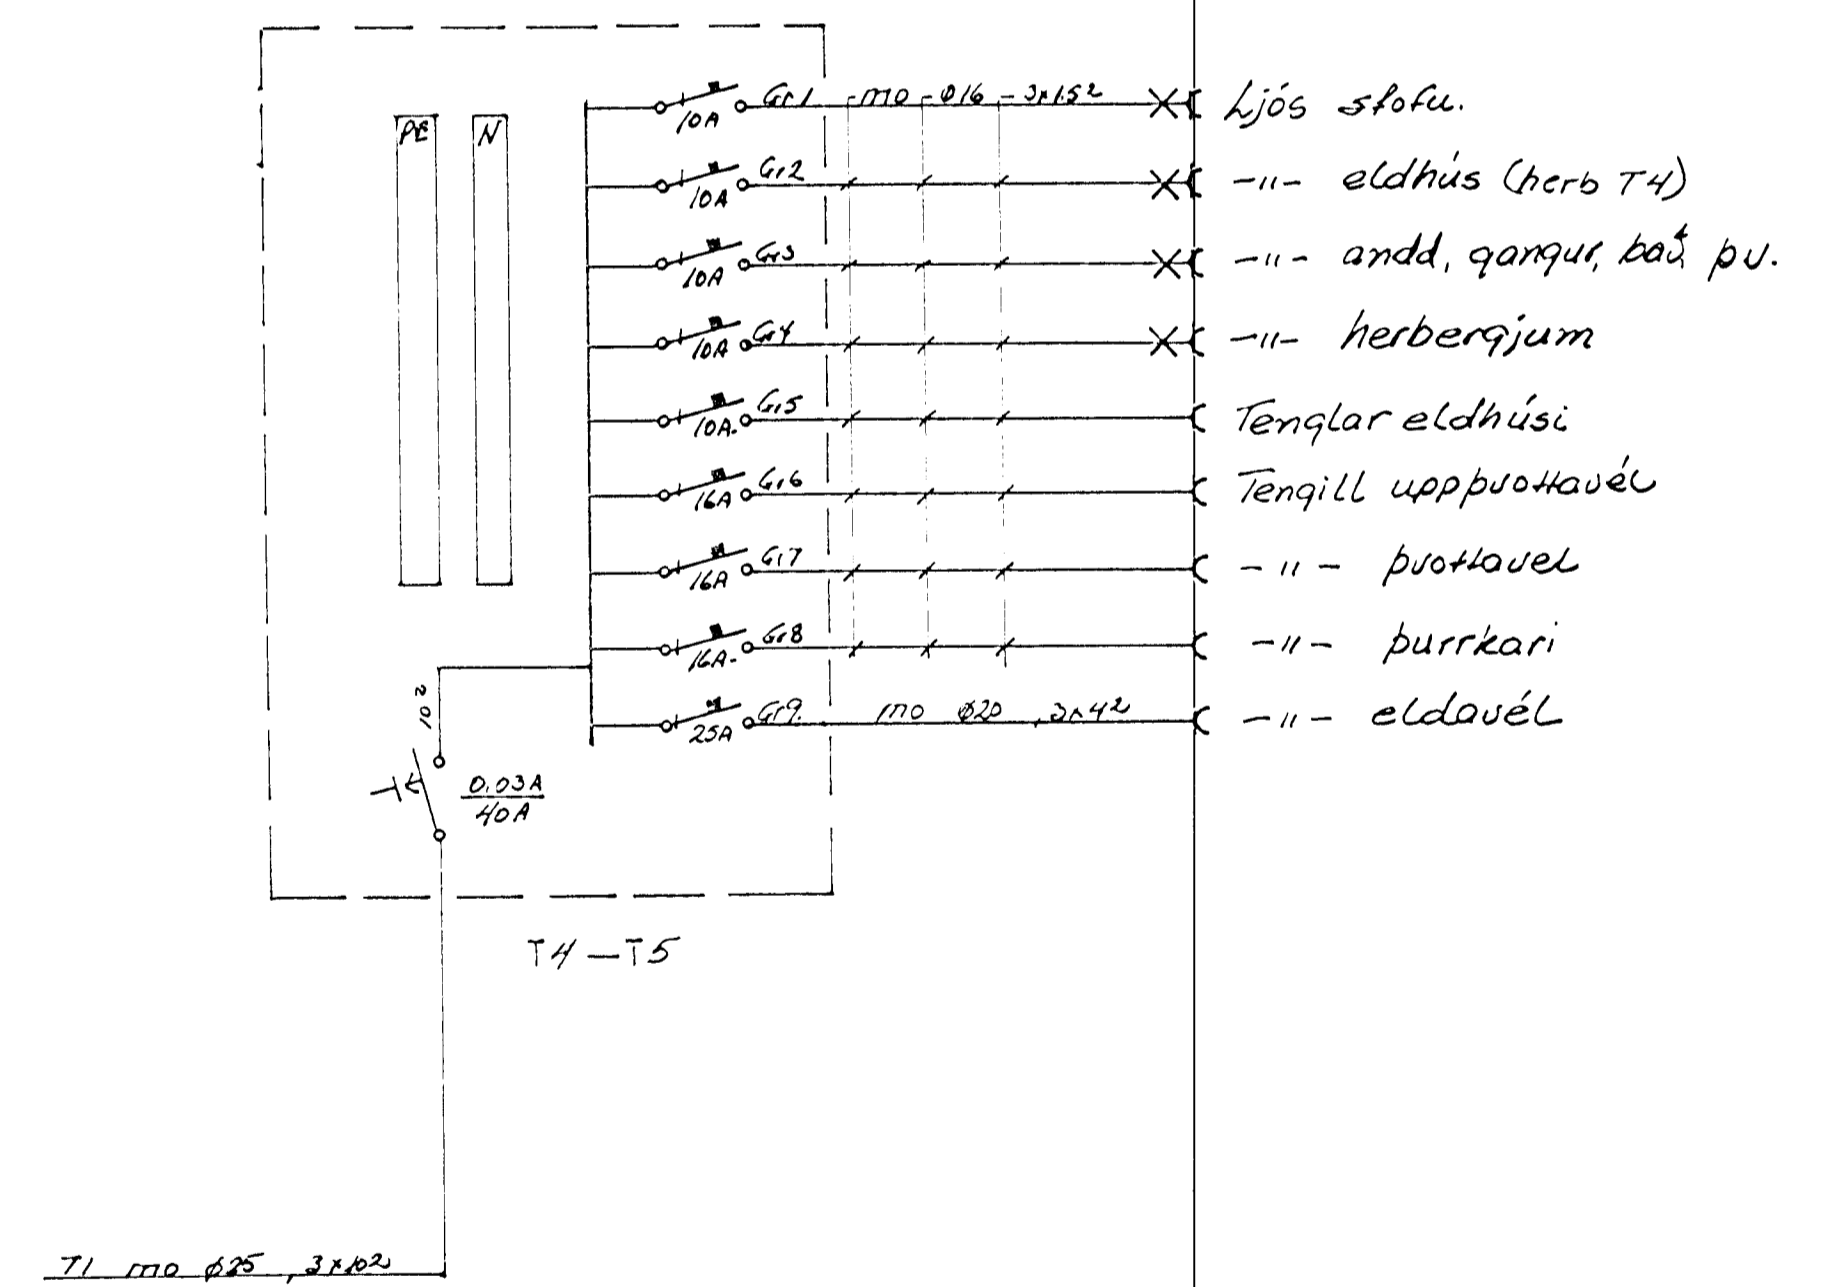 PE N
Gr1 mo ø16 3x1.5² Ljós stofu.
10A
Gr2 -"- eldhús (herb T4)
10A
Gr3 -"- andd, gangur, bað, þv.
10A
Gr4 -"- herbergjum
10A
Gr5 Tenglar eldhúsi
10A.
Gr6 Tengill uppþvottavél
16A
Gr7 -"- þvottavel
16A
Gr8 -"- þurrkari
16A.
Gr9. mo ø20, 3x4² -"- eldavél
25A
10²
0.03A
40A
T4-T5
T1 mo ø25, 3x10²